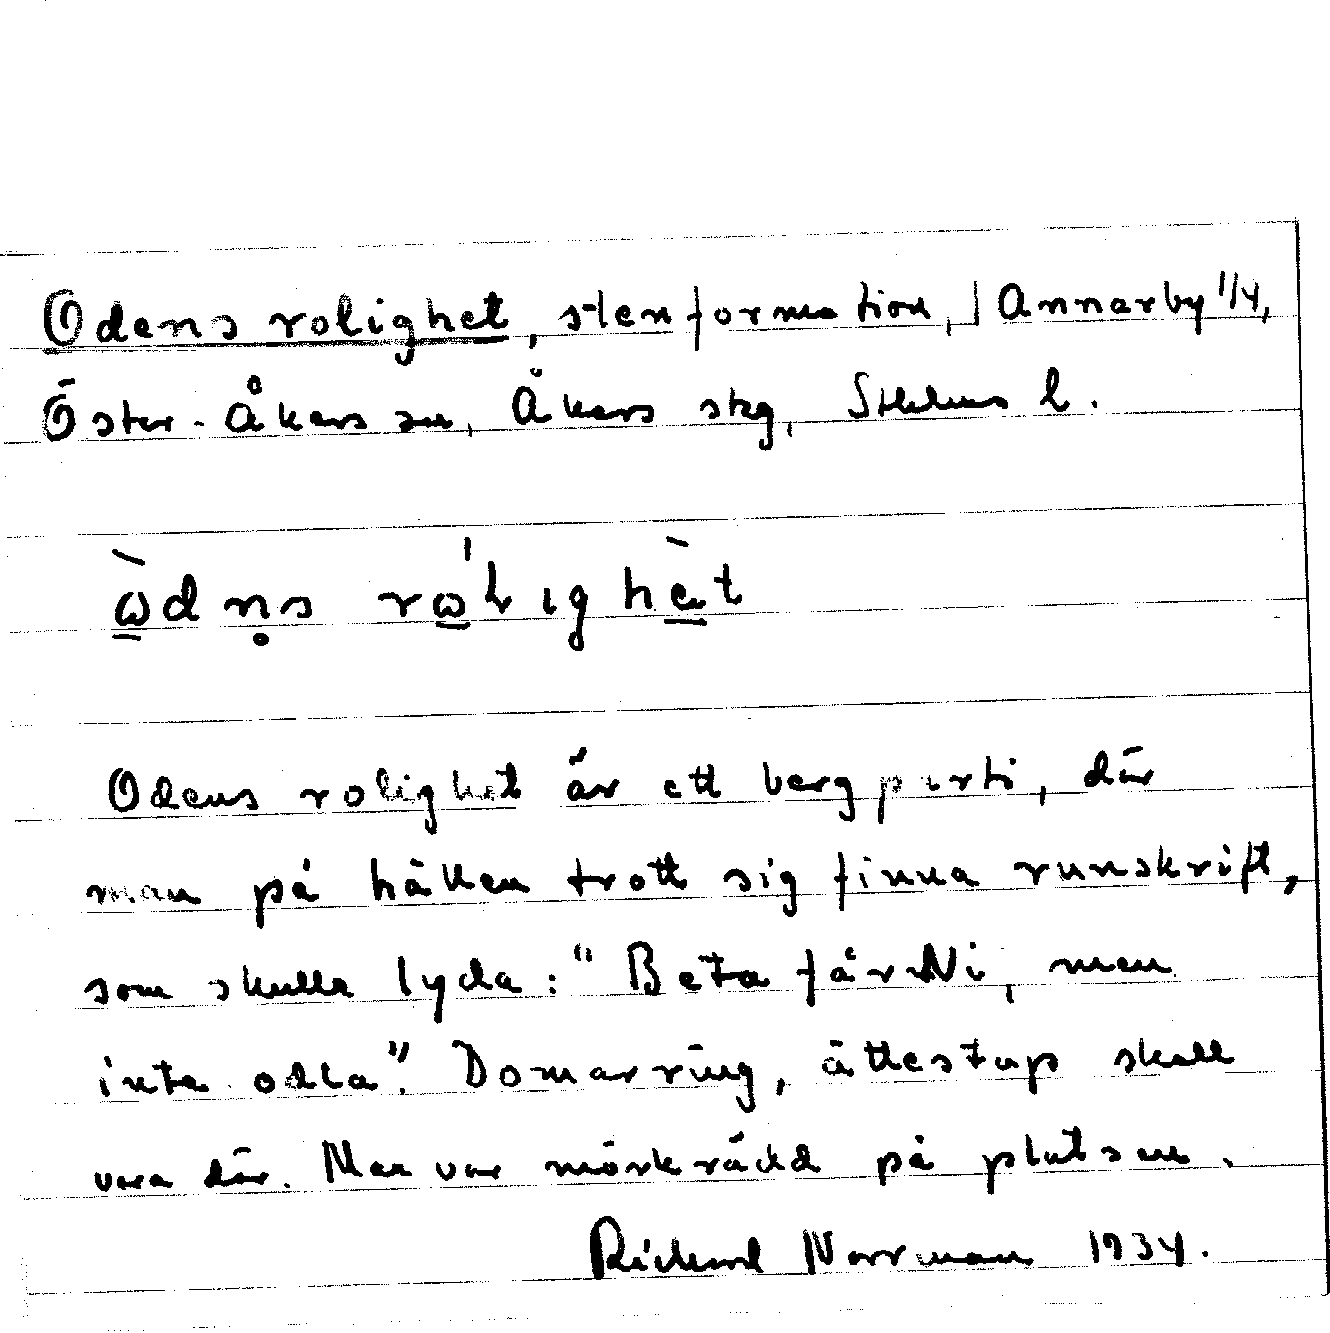 Odens rolighet, stenformation, Annarby 1/4,
Öster-Åkers sn, Åkers skg, Sthlms l.
ὼdn̥s rω'lighèt
Odens rolighet är ett bergparti, där
man på hällen trott sig finna runskrift,
som skulle lyda: "Beta får Ni, men
inte odla". Domarring, ättestup skall
vara där. Man var mörkrädd på platsen.
Richard Norrman 1934.